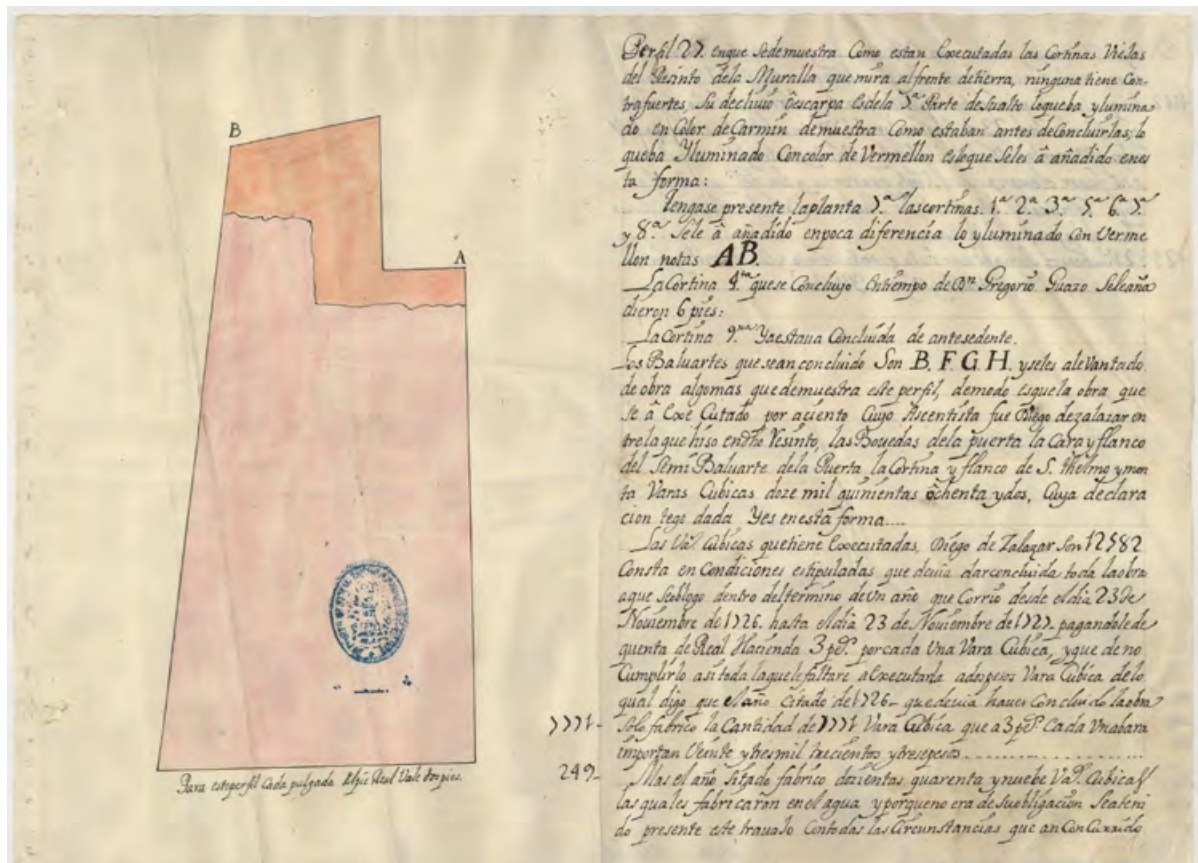 B
A
Para este perfil Cada pulgada del pie Real Vale dos pies.
Perfil 27. en que Se demuestra Como estan Executadas las Cortinas Viejas
del Resinto dela Muralla que mira al frente de tierra, ninguna tiene Con-
trafuertes, Su declivio ô escarpa es dela 7.ª Parte de Su alto lo que ba ylumina
do en Color de Carmin demuestra Como estaban antes de Concluirlas; lo
que ba Yluminado Con color de Vermellon es lo que Seles â añadido en es
ta forma:
Tengase presente la planta 7.ª las cortinas. 1.ª 2.ª 3.ª 5.ª 6.ª 7.ª
y 8.ª Sele â añadido en poca diferencia lo yluminado con Verme
llon notas AB.
La Cortina 4.ta que se Concluyo en tiempo de Dn Gregorio Guazo Sele aña
dieron 6 pies:
La Cortina 9.na Ya estaua Concluida de antesedente.
Los Baluartes que sean concluido Son B. F. G. H. y seles a levantado
de obra algo mas que demuestra este perfil, de modo es que la obra que
se â Exe Cutado por aciento Cuyo Ascentista fue Diego de zalazar en
tre la que hiso en dho Resinto, las Bouedas dela puerta la Cara y flanco
del Semi Baluarte dela Puerta la Cortina y flanco de S. Thelmo y mon
ta Varas Cubicas doze mil quinientas ôchenta y dos, Cuya declara
cion tego dada Yes en esta forma....
Las Vas. Cubicas que tiene Executadas, Diego de Zalazar Son 12582
Consta en Condiciones estipuladas que deuia dar concluida toda la obra
a que Se oblogo dentro del termino de Un año que Corrio desde el dia 23 de
Noviembre de 1726. hasta el dia 23 de Noviembre de 1727. pagandole de
quenta de Real Hacienda 3 ps. por cada Una Vara Cubica, y que de no
Cumplirlo asi toda la que le faltare a Executarla a dos pesos Vara Cubica de lo
qual digo que el año Citado de 1726- que deuia hauer Concluido la obra
7771- Solo fabrico la Cantidad de 7771 Vara Cubica que a 3 ps. Cada Una bara
importan Veinte y tres mil trecientos y trese pesos
249- Mas el año Sitado fabrico dozientas quarenta y nuebe Vas. Cubicas
las quales fabricaron en el agua y porque no era de Su obligacion Se a teni
do presente este trauajo Con todas las Circunstancias que an Con Currido